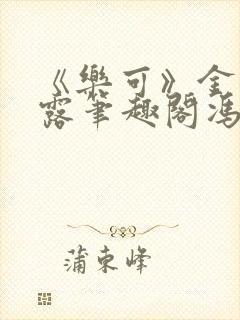 《樂可》金
露筆趣閣馮
蒲東峰